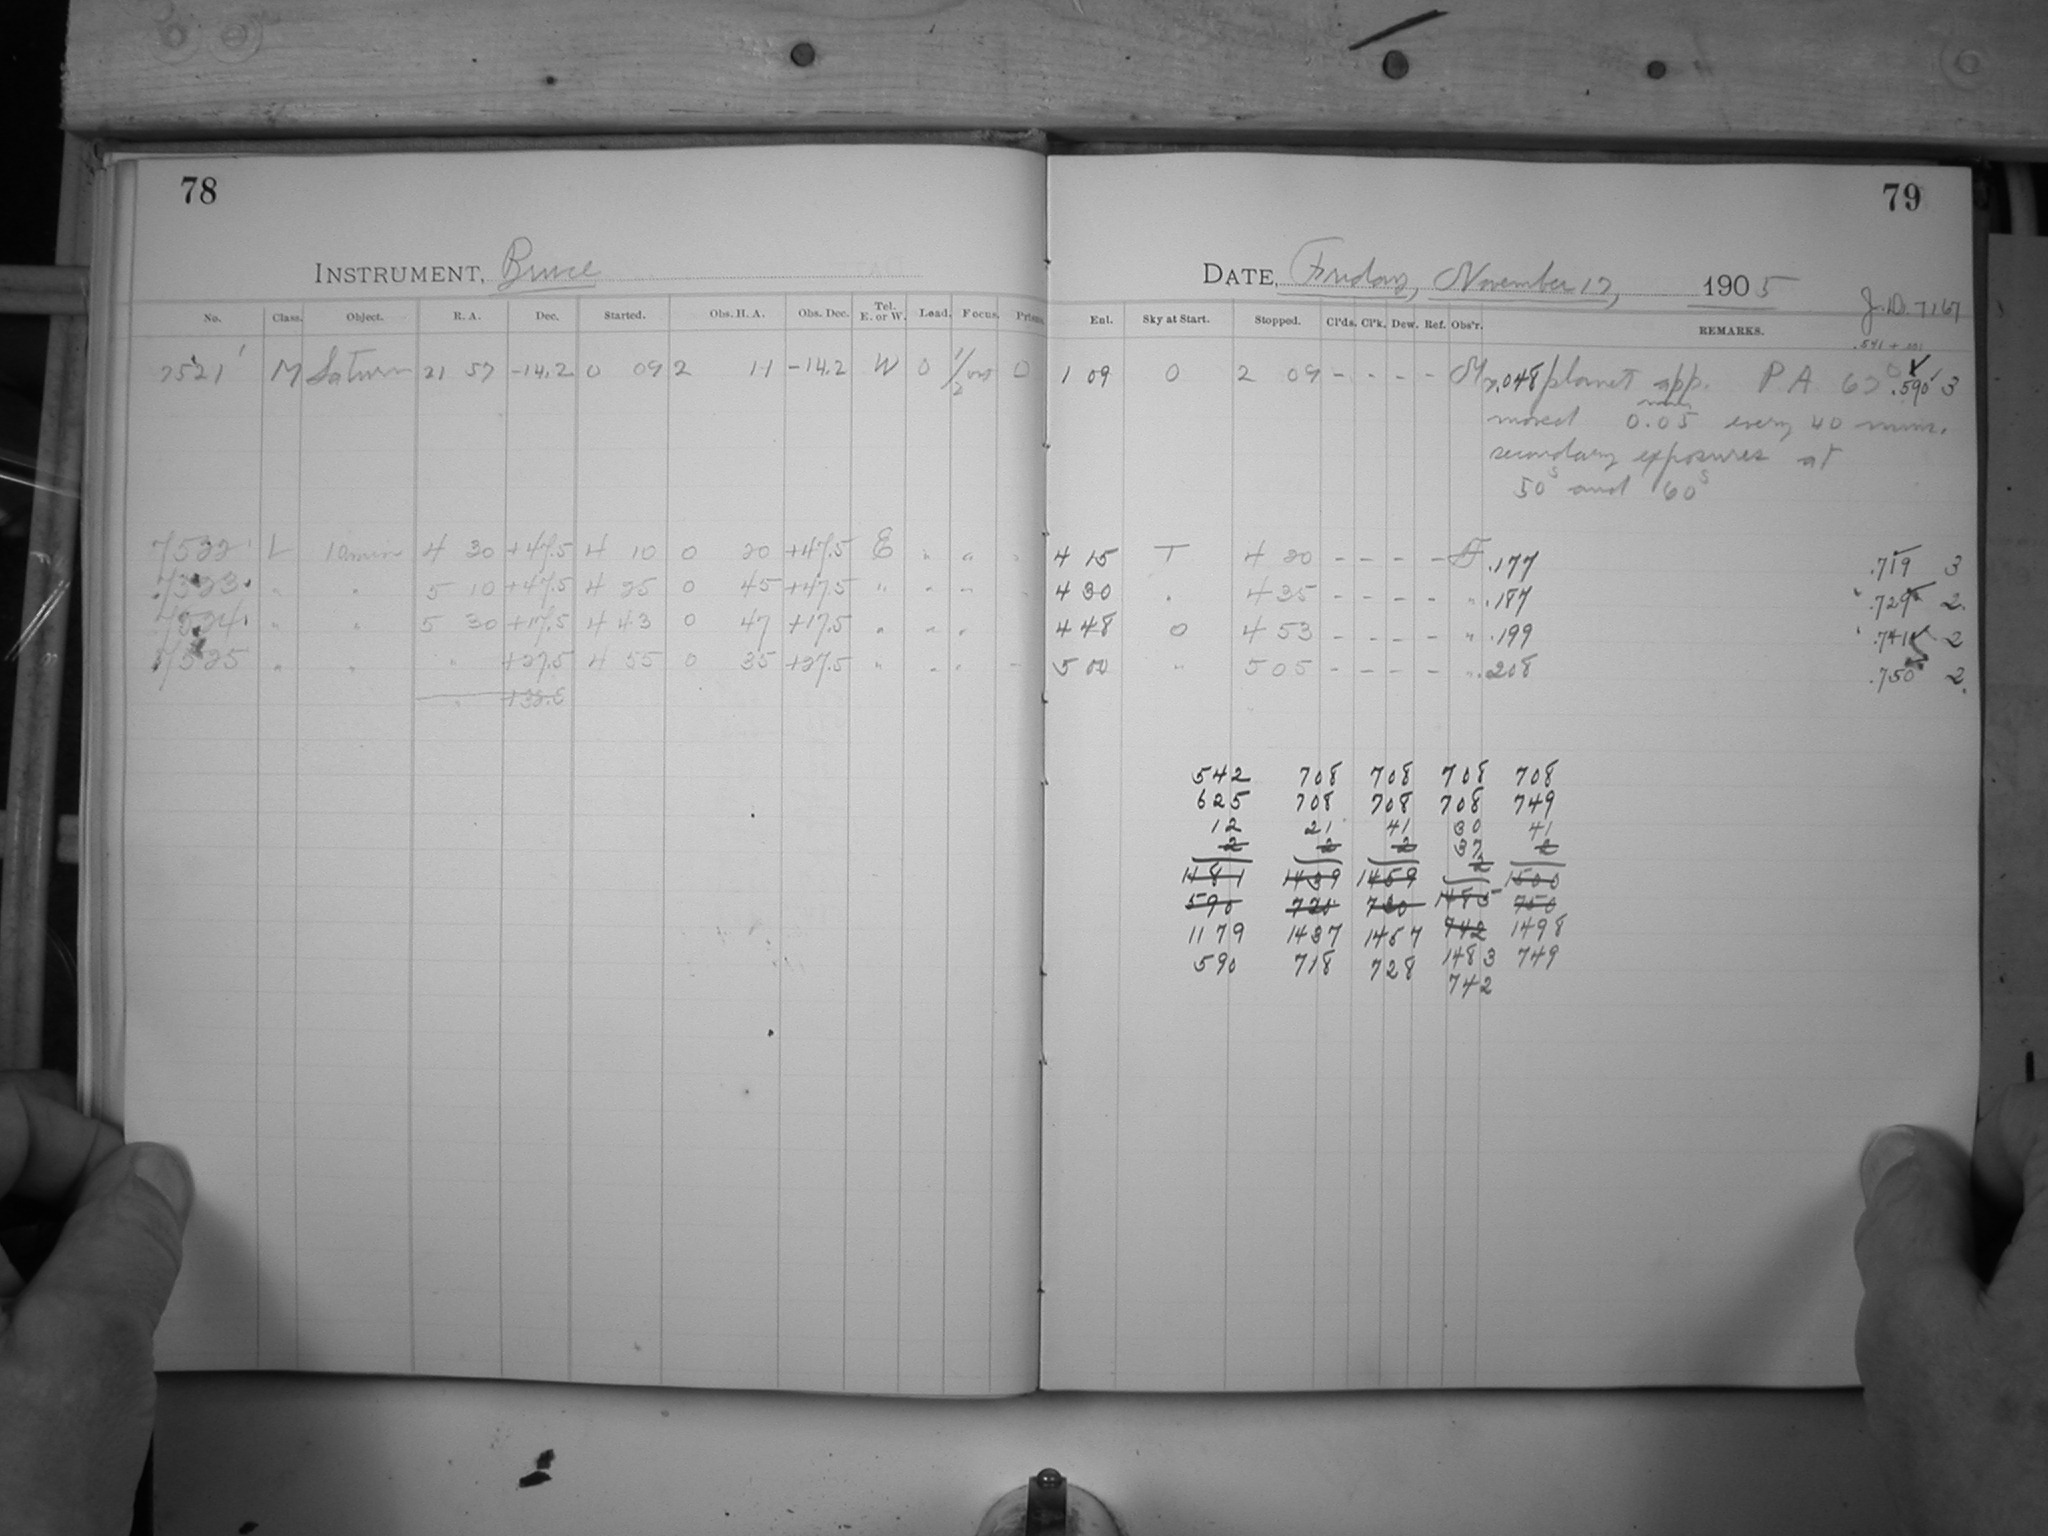 78
INSTRUMENT, Bruce
No. Class. Object. R. A. Dec. Started. Obs. H. A. Obs. Dec. Tel. E. or W. Load. Focus. Prism.
7521 M Saturn 21 57 -14.2 0 09 2 11 -14.2 W 0 0
7522 L 10 min 4 30 +47.5 4 10 0 20 +47.5 E " "
7523 " " 5 10 +47.5 4 25 0 45 +47.5 " " "
7524 " " 5 30 +17.5 4 43 0 47 +17.5 " " "
7525 " " " +27.5 4 55 0 35 +27.5 " " "
" +32.5
79
DATE, Friday, November 17, 1905
J.D. 7167
Enl. Sky at Start. Stopped. Cl'ds. Cl'k. Dew. Ref. Obs'r. REMARKS.
.541 + .001
1 09 0 2 09 - - - - M .048 planet app. P A 63° .590 3
moved 0.05 every 40 mins.
secondary exposures at
50s and 60s
4 15 T 4 20 - - - - .177 .719 3
4 30 " 4 35 - - - - " .187 .729 2
4 48 0 4 53 - - - - " .199 .741 2
5 00 " 5 05 - - - - " .208 .750 2
542 708 708 708 708
625 708 708 708 749
12 21 41 30 41
2 2 2 37 2
2
1181 1439 1459 1500
590 720 730 1485 750
1179 1437 1457 742 1498
590 718 728 1483 749
742